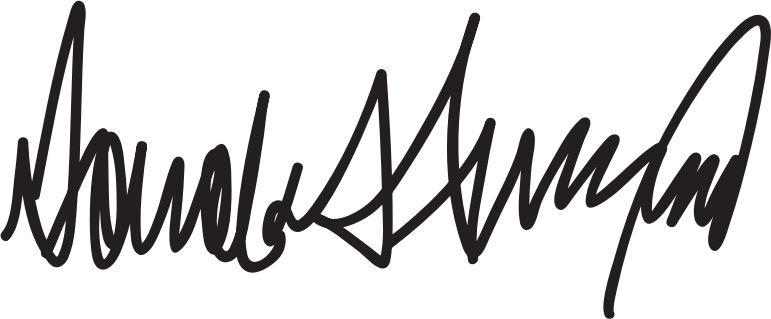 Donald Trump